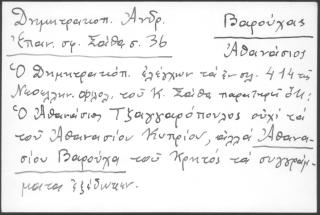 Δημητρακοπ. Ἀνδρ.
Βαρούχας
Ἐπαν. σφ. Σάθα σ. 36
Ἀθανάσιος
Ὁ Δημητρακόπ. ἐλέγχων τὰ ἐν σελ. 414 τῆς
Νεοελλην. φιλολ. τοῦ Κ. Σάθα παρατηρεῖ ὅτι:
Ὁ Ἀθανάσιος Τζαγγαρόπουλος οὐχὶ τὰ
τοῦ Ἀθανασίου Κυπρίου, ἀλλὰ Ἀθανα-
σίου Βαρούχα τοῦ Κρητός τὰ συγγράμ-
ματα ἐξέδωκεν.